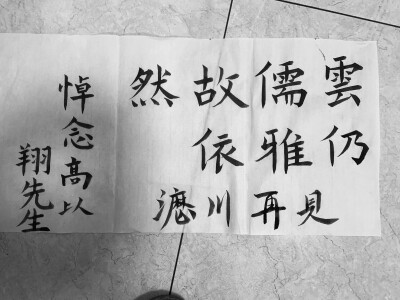 雲仍
儒雅
故依
然
川再見
悼念高以
翔先生